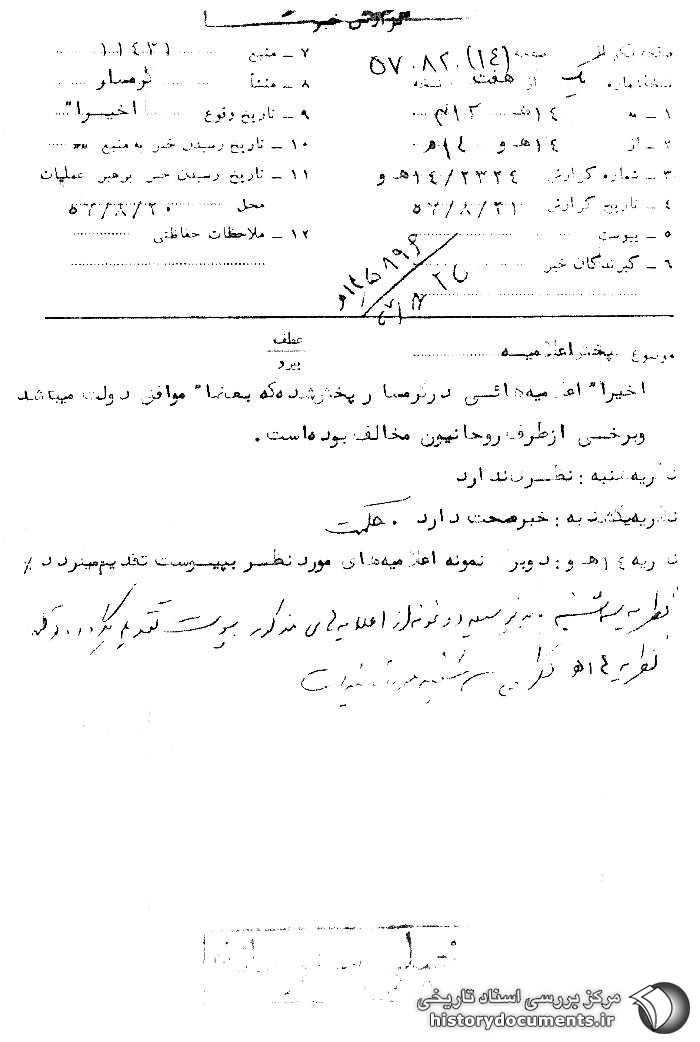 گزارش خبر
صفحه یک از صفحه (۱۴) ۵۷۰۸۲۰
نسخه شماره یک از هفت نسخه
۱ - به ۱۴هـ ۳۱۲
۲ - از ۱۴هـ و
۳ - شماره گزارش ۱۴/۲۳۲۴هـ و
۴ - تاریخ گزارش ۵۷/۸/۲۱
۵ - پیوست
۶ - گیرندگان خبر
۷ - منبع ۱۱۴۳۱
۸ - منشأ گرمسار
۹ - تاریخ وقوع اخیرا"
۱۰ - تاریخ رسیدن خبر به منبع
۱۱ - تاریخ رسیدن خبر برهبر عملیات
محل ۵۷/۸/۲۰
۱۲ - ملاحظات حفاظتی
موضوع پخش اعلامیه
عطف
پیرو
اخیرا" اعلامیه‌هائی در گرمسار پخش شده که بعضا" موافق دولت میباشد
و برخی از طرف روحانیون مخالف بوده است.
نظریه شنبه : نظری ندارد
نظریه یکشنبه : خبر صحت دارد . حکمت
نظریه ۱۴هـ و : دو برگ نمونه اعلامیه‌های مورد نظر بپیوست تقدیم میگردد /
نظریه سه‌شنبه . دو نمونه از اعلامیه‌های مذکور پیوست تقدیم میگردد.
نظریه ۱۴هـ نظریه سه شنبه مورد تأیید است
مرکز بررسی اسناد تاریخی
historydocuments.ir